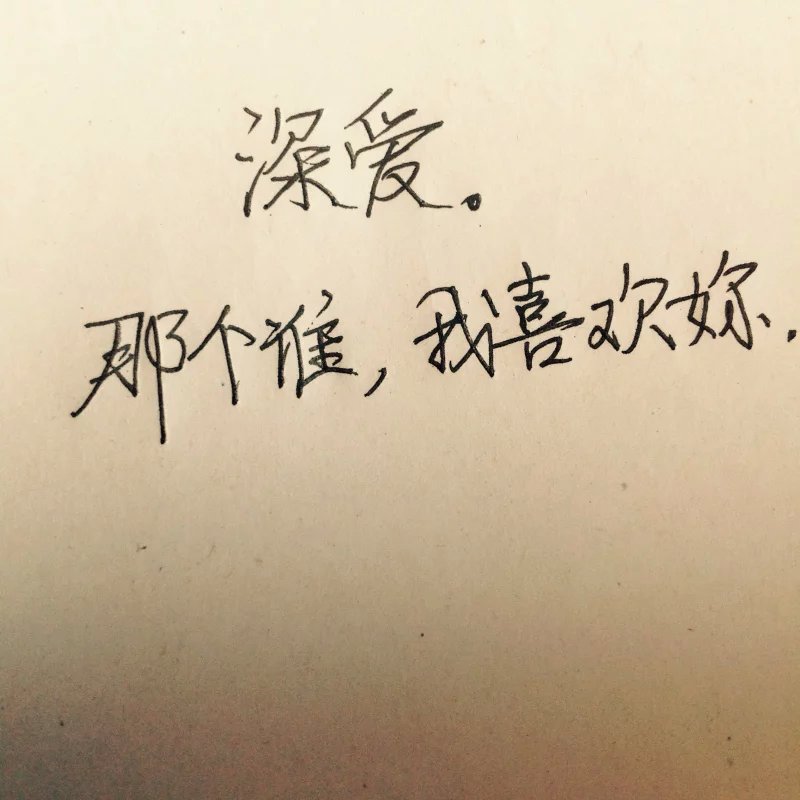 深爱。
那个谁，我喜欢妳.